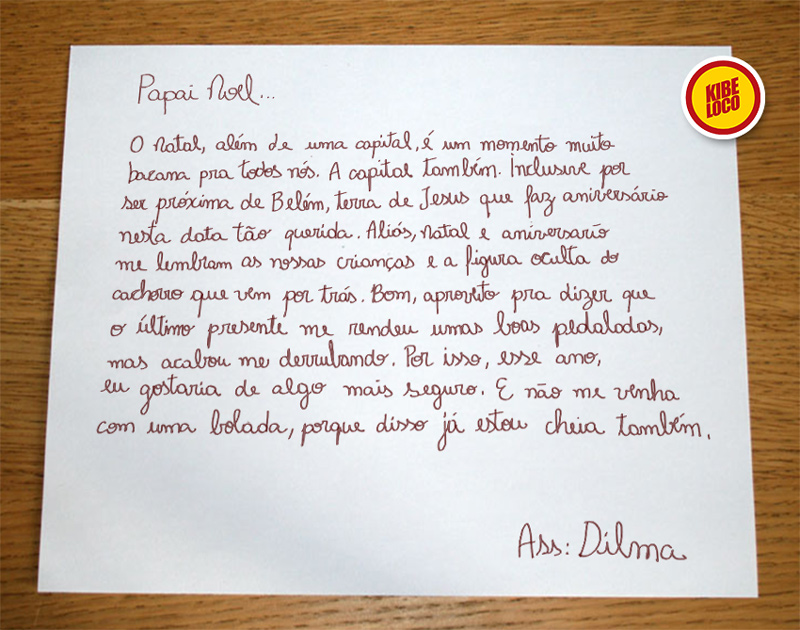 KIBE
LOCO
Papai Noel...
O Natal, além de uma capital, é um momento muito
bacana pra todos nós. A capital também. Inclusive por
ser próxima de Belém, terra de Jesus que faz aniversário
nesta data tão querida. Aliás, natal e aniversario
me lembram as nossas crianças e a figura oculta do
cachorro que vem por trás. Bom, aproveito pra dizer que
o último presente me rendeu umas boas pedaladas,
mas acabou me derrubando. Por isso, esse ano,
eu gostaria de algo mais seguro. E não me venha
com uma bolada, porque disso já estou cheia também.
Ass: Dilma